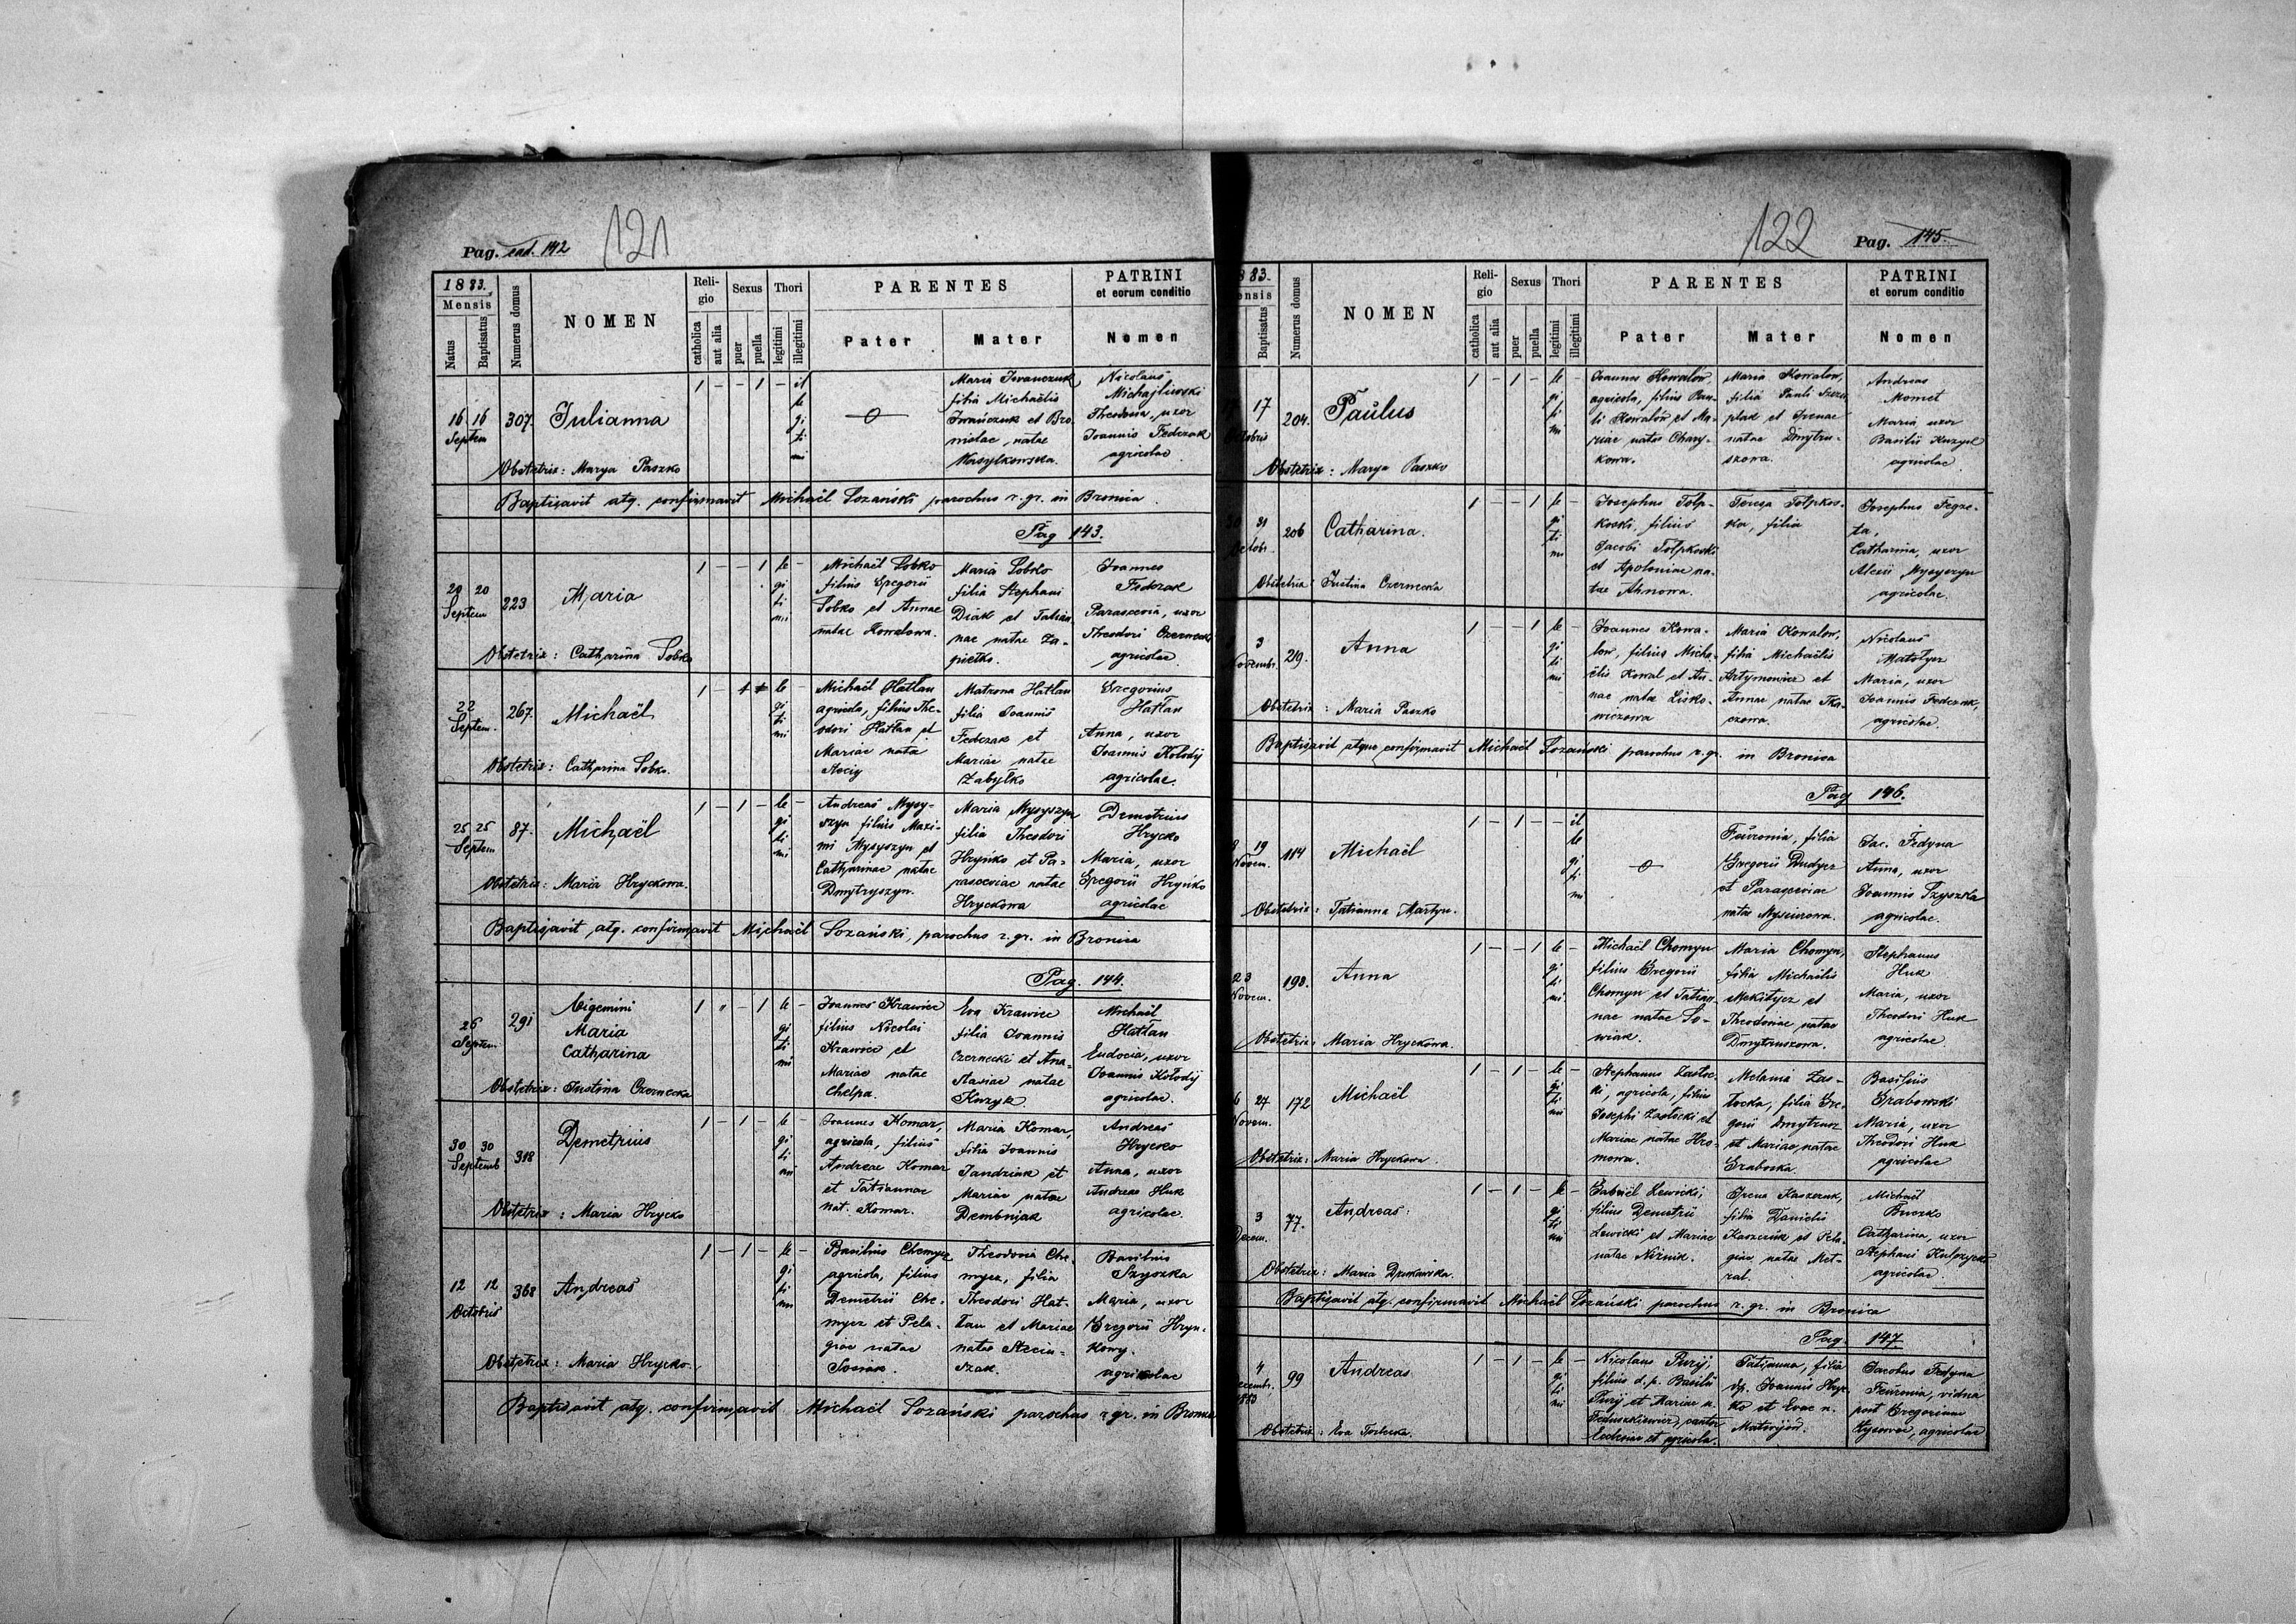 Pag. ead. 142
121
1883.
Mensis
Natus
Baptisatus
Numerus domus
NOMEN
Reli-
gio
catholica
aut alia
Sexus
puer
puella
Thori
legitimi
illegitimi
PARENTES
Pater
Mater
PATRINI
et eorum conditio
Nomen
16 16
Septem
307.
Julianna
1 - - 1 - il
le
gi
ti
mi
Maria Iwanczuk
filia Michaëlis
Iwańczuk et Bro-
nislae, natae
Wasylkowska.
Nicolaus
Michajliwski
Theodosia, uxor
Joannis Fedczak
agricolae
Obstetrix: Marya Paszko
Baptisavit atq. confirmavit Michaël Lozański parochus r. gr. in Bronica.
Pag 143.
20 20
Septem
223
Maria
1 - - 1 le -
gi
ti
mi
Michaël Sobko
filius Gregorii
Sobko et Annae
natae Kowalowa.
Maria Sobko
filia Stephani
Diak et Tatian-
nae natae Za-
pietko.
Joannes
Fedczak
Parascevia, uxor
Theodori Czernecki
agricolae
Obstetrix: Catharina Sobko
22
Septem.
267.
Michaël
1 - 1 le -
gi
ti
mi
Michaël Hatlan
agricola, filius The-
odori Hatlan et
Mariae nata
Matrona Hatlan
filia Joannis
Fedczak et
Mariae natae
Zabytko
Gregorius
Hatlan
Anna, uxor
Joannis Kolodij
agricolae.
Obstetrix: Catharina Sobko.
25 25
Septem
87.
Michaël
1 - 1 - le -
gi
ti
mi
Andreas Mysy-
szyn filius Maxi-
mi Mysyszyn et
Catharinae natae
Dmytryszyn.
Maria Mysyszyn
filia Theodori
Hryńko et Pa-
rasceviae natae
Hryckowa
Demetrius
Hrycko
Maria, uxor
Gregorii Hryńko
agricolae
Obstetrix: Maria Hryckowa.
Baptisavit atq. confirmavit Michaël Lozański, parochus r. gr. in Bronica
Pag. 144.
26
Septem.
291
Bigemini
Maria
Catharina
1 - 1 le -
gi
ti
mi
Joannes Krawiec
filius Nicolai
Krawiec et
Mariae natae
Chelpa.
Eva Krawiec
filia Joannis
Czernecki et Ana-
stasiae natae
Kuzyk.
Michaël
Hatlan
Eudocia, uxor
Joannis Kolodij
agricolae.
Obstetrix: Justina Czernecka
30 30
Septemb
318
Demetrius
1 - 1 - le -
gi
ti
mi
Joannes Komar,
agricola, filius
Andreae Komar
et Tatiannae
nat. Komar.
Maria Komar,
filia Joannis
Jandziak et
Mariae natae
Dembniak
Andreas
Hrycko
Anna, uxor
Andreae Huk
agricolae.
Obstetrix: Maria Hrycko
12 12
Octobris
368
Andreas
1 - 1 - le -
gi
ti
mi
Basilius Chemycz
agricola, filius
Demetrii Che-
mycz et Pela-
giae natae
Sosiak.
Theodosia Che-
mycz, filia
Theodori Hat-
lan et Mariae
natae Steciu-
szak.
Basilius
Szyszka
Maria, uxor
Gregorii Hryn-
kowy.
agricolae
Obstetrix: Maria Hrycko.
Baptisavit atq. confirmavit Michaël Lozański parochus r. gr. in Bronica
122
Pag. 145.
83.
ensis
Baptisatus
Numerus domus
NOMEN
Reli-
gio
catholica
aut alia
Sexus
puer
puella
Thori
legitimi
illegitimi
PARENTES
Pater
Mater
PATRINI
et eorum conditio
Nomen
17
Octobris
204.
Paulus
1 - 1 - le -
gi
ti
mi
Joannes Kowalow,
agricola, filius Pau-
li Kowalow et Ma-
riae natae Chary-
kowa.
Maria Kowalow,
filia Pauli
et Irenae
natae Dmytru-
szowa.
Andreas
Momet
Maria uxor
Basilii Kuzyk
agricolae
Obstetrix: Marya Paszko
30 31
Octobr.
206
Catharina.
1 - - 1 le -
gi
ti
mi
Josephus Tolp-
koski, filius
Jacobi Tolpkoski
et Apoloniae na-
tae Ahnowa.
Teresa Tolpkos-
ka, filia
Josephus
ta,
Catharina, uxor
Alexii Mysyszyn
agricolae.
Obstetrix: Justina Czernecka
3
Novembr.
219.
Anna
1 - - 1 le -
gi
ti
mi
Joannes Kowa-
low, filius Micha-
ëlis Kowal et An-
nae natae Lisko-
wiczowa
Maria Kowalow,
filia Michaëlis
Artymowicz et
Annae natae Tka-
czowa.
Nicolaus
Matolycz
Maria, uxor
Joannis Fedczak,
agricolae.
Obstetrix: Maria Paszko
Baptisavit atque confirmavit Michaël Lozanski parochus r. gr. in Bronica
Pag 146.
19
Novem.
114
Michaël
1 - 1 - - il
le
gi
ti
mi
Fevronia, filia
Gregorii Dudycz
et Parasceviae
natae Mysiurowa.
Jac. Fedyna
Anna, uxor
Joannis Szyszka
agricolae.
Obstetrix: Tatianna Martyn.
23
Novem.
193.
Anna
1 - - 1 le -
gi
ti
mi
Michaël Chomyn
filius Gregorii
Chomyn et Tatian-
nae natae So-
wiak.
Maria Chomyn,
filia Michaëlis
Mekitycz et
Theodosiae natae
Dmytruszowa.
Stephanus
Huk
Maria, uxor
Theodori Huk
agricolae.
Obstetrix: Maria Hryckowa.
27
Novem.
172
Michaël
1 - 1 - le -
gi
ti
mi
Stephanus Zastoc-
ki, agricola, filius
Josephi Zastocki et
Mariae natae Hro-
mowa.
Melania Zas-
tocka, filia Gre-
gorii Dmytrusz
et Mariae natae
Graboska.
Basilius
Grabowski
Maria, uxor
Theodori Huk
agricolae
Obstetrix: Maria Hryckowa.
3
Decem.
77.
Andreas.
1 - 1 - le -
gi
ti
mi
Gabriël Lewicki,
filius Demetrii
Lewicki et Mariae
natae Niżnik.
Irena Kaszczuk,
filia Danielis
Kaszczuk et Pela-
giae natae Met-
zal.
Michaël
Buczko
Catharina, uxor
Stephani Kulczycki
agricolae.
Obstetrix: Maria Dzukańska.
Baptisavit atq. confirmavit Michaël Lozański parochus r. gr. in Bronica
Pag. 147
4
ecembr.
1883
99
Andreas
1 - 1 - le -
gi
ti
mi
Nicolaus Puzij,
filius d. p. Basilii
Puzij et Mariae n.
Feduszkiewicz, cantor
Ecclesiae et agricola.
Tatianna, filia
dp. Joannis Hryc-
ko et Evae n.
Matwijów.
Jacobus Fedyna
Fevronia, vidua
post Gregorium
agricolae
Obstetrix: Eva